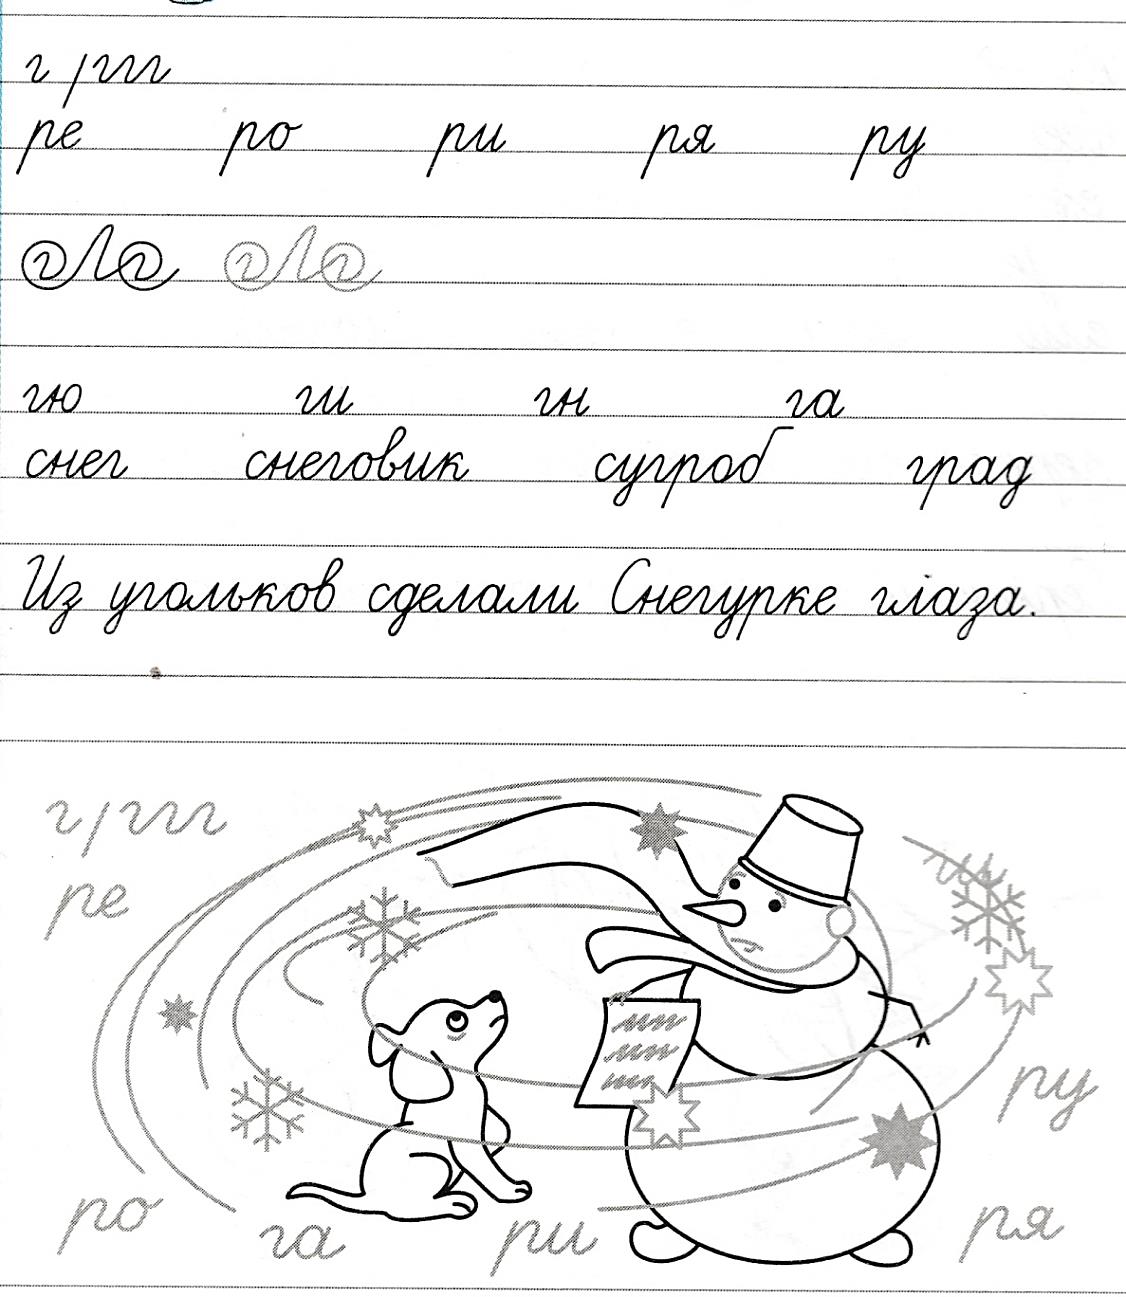 г ггг
ре ро ри ря ру
гю ги гн га
снег снеговик сугроб град
Из угольков сделали Снегурке глаза.
г ггг
ги
ре
ру
ро га ри ря